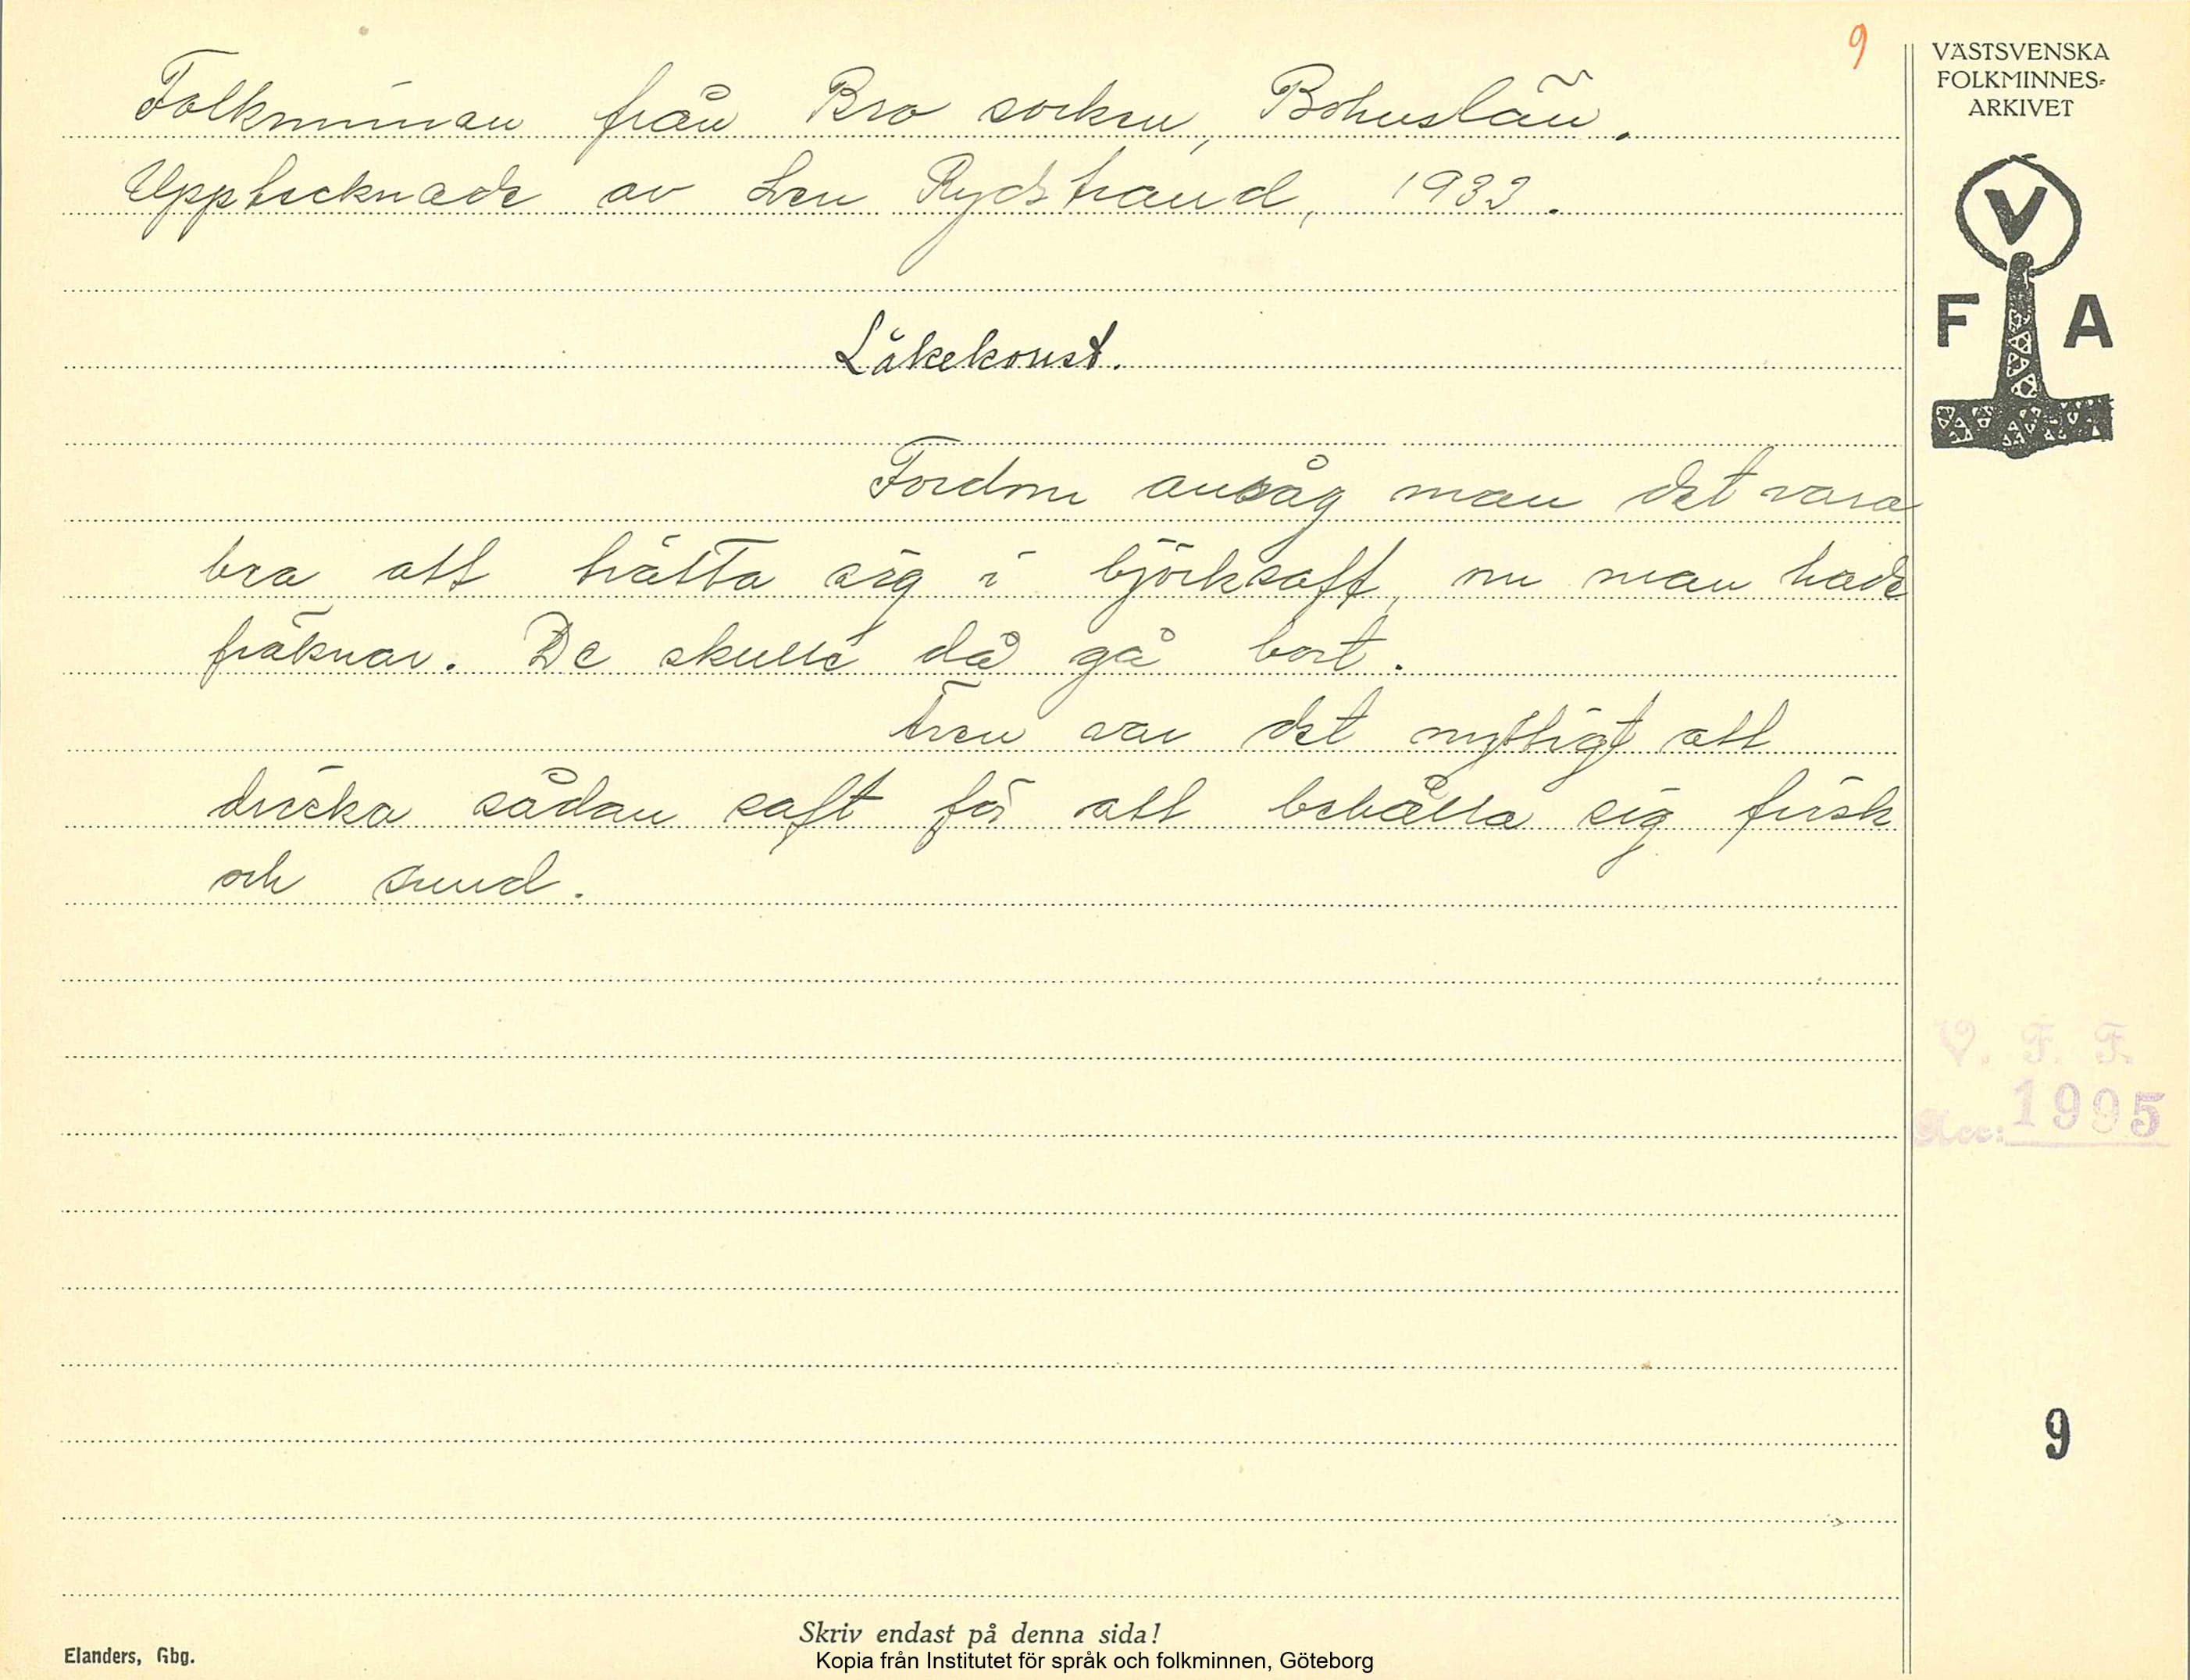 9
VÄSTSVENSKA
FOLKMINNES-
ARKIVET
V
F A
Folkminnen från Bro socken, Bohuslän.
Upptecknade av Sven Rydstrand, 1932.
Läkekonst.
Fordom ansåg man det vara
bra att tvätta sig i björksaft, om man hade
fräknar. De skulle då gå bort.
Även var det nyttigt att
dricka sådan saft för att behålla sig frisk
och sund.
V. F. F.
Acc: 1995
9
Skriv endast på denna sida!
Elanders, Gbg.
Kopia från Institutet för språk och folkminnen, Göteborg